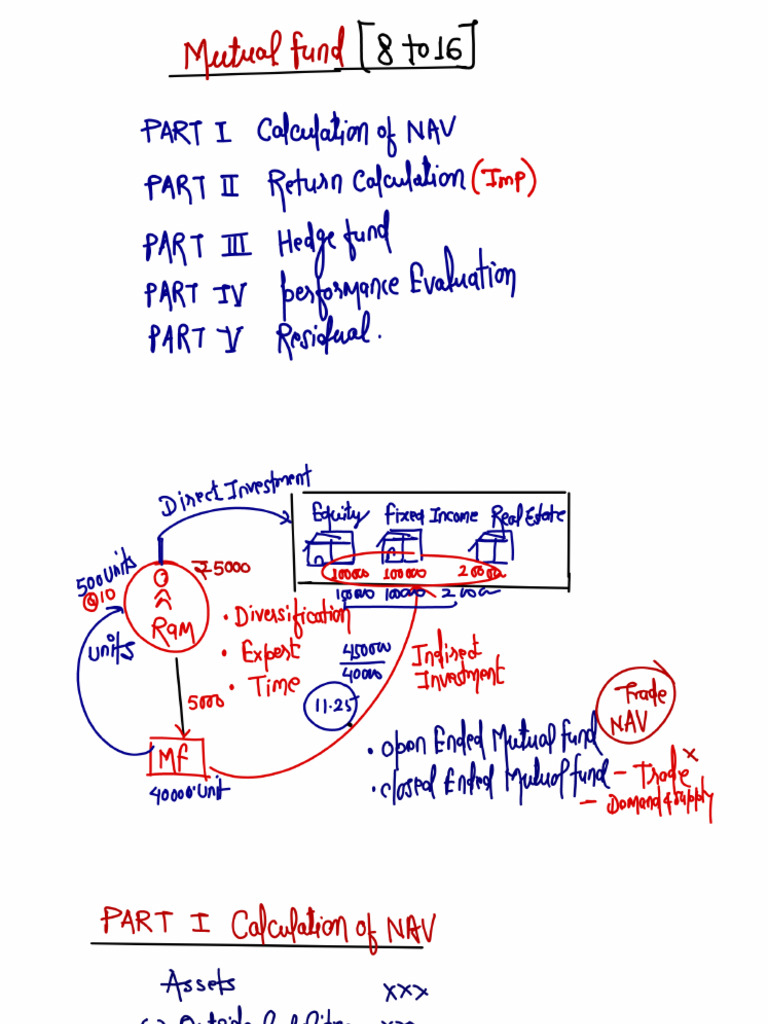 Mutual fund [8 to 16]
PART I Calculation of NAV
PART II Return Calculation (Imp)
PART III Hedge fund
PART IV performance Evaluation
PART V Residual.
Direct Investment
Equity fixed Income Real Estate
100000 100000
100000 100000
500 units
@10
₹5000
Ram
units
• Diversification
• Expert
• Time
5000
450000
40000
11.25
Indirect
Investment
MF
40000 unit
Trade
NAV
• open Ended Mutual fund
• closed Ended Mutual fund - Trade x
- Demand & supply
PART I Calculation of NAV
Assets xxx